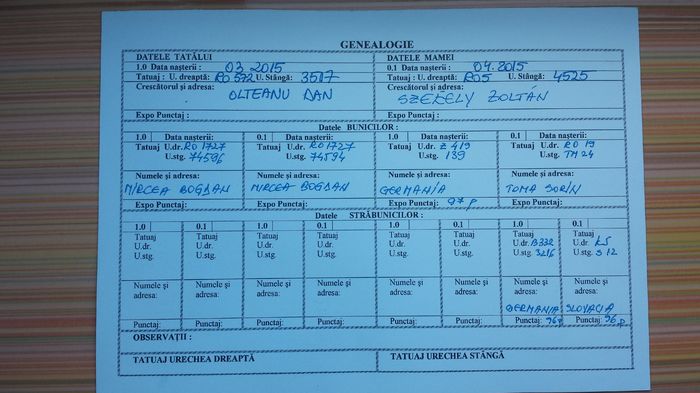 GENEALOGIE
DATELE TATĂLUI
DATELE MAMEI
1.0 Data nașterii : 03.2015
0.1 Data nașterii : 04.2015
Tatuaj : U. dreaptă: RO 572 U. Stângă: 3517
Tatuaj : U. dreaptă: RO5 U. Stângă: 4525
Crescătorul și adresa:
Crescătorul și adresa:
OLTEANU DAN
SZEKELY ZOLTÁN
Expo Punctaj :
Expo Punctaj :
Datele BUNICILOR :
1.0 Data nașterii:
0.1 Data nașterii:
1.0 Data nașterii:
0.1 Data nașterii:
Tatuaj U.dr. RO 1727
Tatuaj U.dr. RO 1727
Tatuaj U.dr. Z 419
Tatuaj U.dr. RO 19
U.stg. 74596
U.stg. 74594
U.stg. 139
U.stg. TM 24
Numele și adresa:
Numele și adresa:
Numele și adresa:
Numele și adresa:
MIRCEA BOGDAN
MIRCEA BOGDAN
GERMANIA
TOMA SORIN
Expo Punctaj:
Expo Punctaj:
Expo Punctaj: 97 p
Expo Punctaj:
Datele STRĂBUNICILOR :
1.0
0.1
1.0
0.1
1.0
0.1
1.0
0.1
Tatuaj
Tatuaj
Tatuaj
Tatuaj
Tatuaj
Tatuaj
Tatuaj
Tatuaj
U.dr.
U.dr.
U.dr.
U.dr.
U.dr.
U.dr.
U.dr. B332
U.dr. K5
U.stg.
U.stg.
U.stg.
U.stg.
U.stg.
U.stg.
U.stg. 3216
U.stg. S 12
Numele și
Numele și
Numele și
Numele și
Numele și
Numele și
Numele și
Numele și
adresa:
adresa:
adresa:
adresa:
adresa:
adresa:
adresa:
adresa:
GERMANIA
SLOVACIA
Punctaj:
Punctaj:
Punctaj:
Punctaj:
Punctaj:
Punctaj:
Punctaj: 96p
Punctaj: 96 p
OBSERVAȚII :
TATUAJ URECHEA DREAPTĂ
TATUAJ URECHEA STÂNGĂ